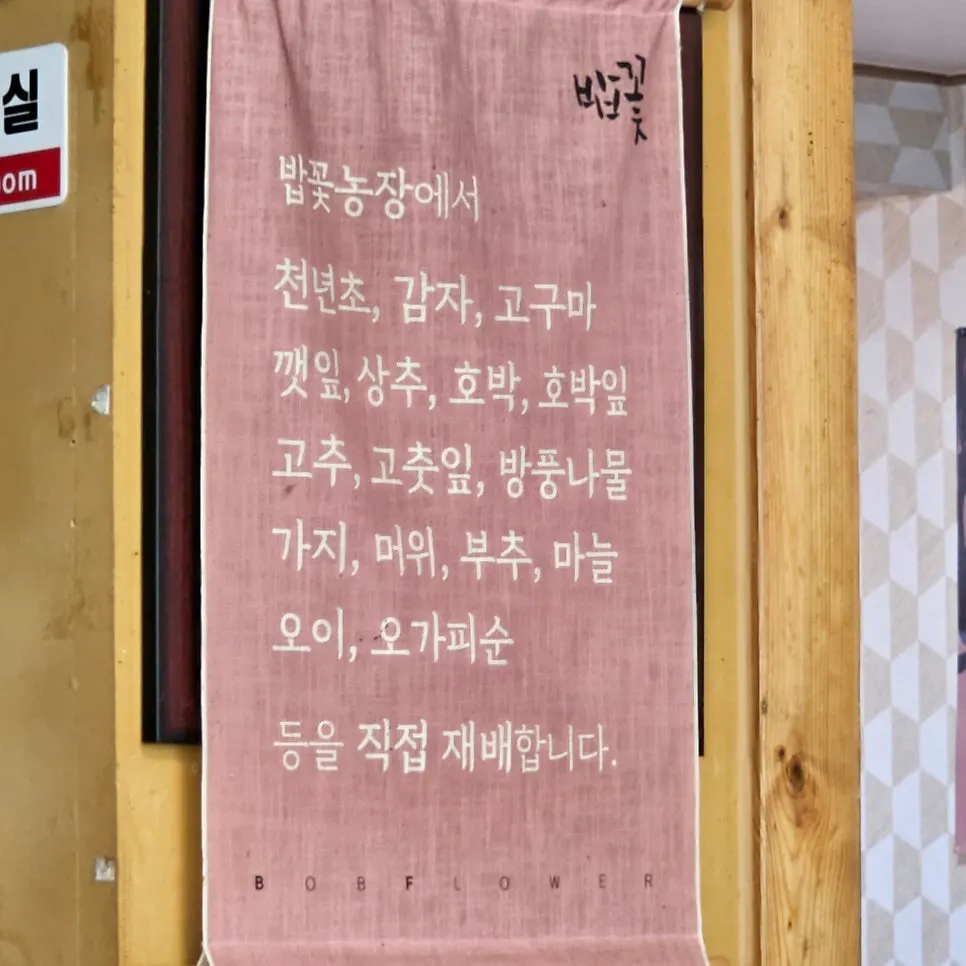 실
oom
밥꽃
밥꽃농장에서
천년초, 감자, 고구마
깻잎, 상추, 호박, 호박잎
고추, 고춧잎, 방풍나물
가지, 머위, 부추, 마늘
오이, 오가피순
등을 직접 재배합니다.
BOBFLOWER